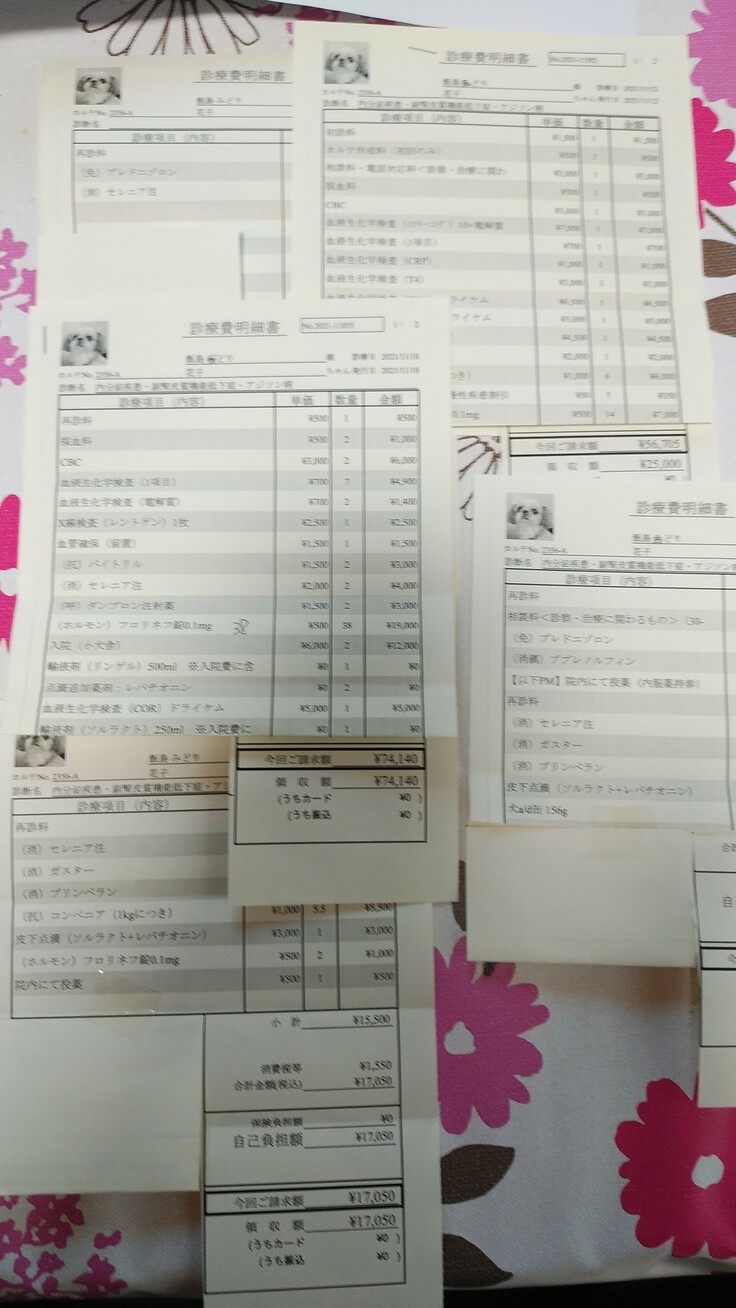 診療費明細書
カルテNo. 2356-A
花子
診断名
診療項目（内容）
再診料
（免）プレドニゾロン
（消）セレニア注
診療費明細書
1 / 2
花子
診断名 内分泌疾患・副腎皮質機能低下症・アジソン病
診療項目（内容） 単価 数量 金額
初診料 ¥1,500 1 ¥1,500
カルテ作成料（初回のみ） ¥500 1 ¥500
相談料・電話対応料<診察・治療に関わ
採血料 ¥500 1 ¥500
CBC
血液生化学検査 ¥7,000 1 ¥7,000
血液生化学検査（1項目） ¥700 1 ¥700
血液生化学検査（CRP）
血液生化学検査（T4）
血液生化学検査 ドライケム
ライケム
0.1mg ¥500 14 ¥7,000
今回ご請求額 ¥56,705
領 収 額 ¥25,000
診療費明細書
1 / 2
様 診療日 2021/11/18
カルテNo. 2356-A 花子 ちゃん 発行日 2021/11/18
診断名 内分泌疾患・副腎皮質機能低下症・アジソン病
診療項目（内容） 単価 数量 金額
再診料 ¥500 1 ¥500
採血料 ¥500 2 ¥1,000
CBC ¥3,000 2 ¥6,000
血液生化学検査（1項目） ¥700 7 ¥4,900
血液生化学検査（電解質） ¥700 2 ¥1,400
X線検査（レントゲン）1枚 ¥2,500 1 ¥2,500
血管確保（留置） ¥1,500 1 ¥1,500
（抗）バイトリル ¥1,500 2 ¥3,000
（消）セレニア注 ¥2,000 2 ¥4,000
（呼）ダンプロン注射薬 ¥1,500 2 ¥3,000
（ホルモン）フロリネフ錠0.1mg ¥500 38 ¥19,000
入院（小犬舎） ¥6,000 2 ¥12,000
輸液剤（リンゲル）500ml ※入院費に含 ¥0 1 ¥0
点滴追加薬剤：レバチオニン ¥0 2 ¥0
血液生化学検査（COR）ドライケム ¥5,000 1 ¥5,000
輸液剤（ソルラクト）250ml ※入院費に ¥0 1 ¥0
今回ご請求額 ¥74,140
領 収 額 ¥74,140
（うちカード ¥0 ）
（うち振込 ¥0 ）
診療費明細書
カルテNo. 2356-A 花子
診断名 内分泌疾患・副腎皮質機能低下症・アジソン病
診療項目（内容）
再診料
相談料<診察・治療に関わるもの>（30-
（免）プレドニゾロン
（消鎮）ブプレノルフィン
【以下PM】院内にて投薬（内服薬持参）
再診料
（消）セレニア注
（消）ガスター
（消）プリンペラン
皮下点滴（ソルラクト+レバチオニン）
犬a/d缶 156g
飯島 みどり
カルテNo. 2356-A 花子
診断名 内分泌疾患・副腎皮質機能低下症・ア
診療項目（内容）
再診料
（消）セレニア注
（消）ガスター
（消）プリンペラン
（抗）コンベニア（1kgにつき） ¥1,000 5.5 ¥5,500
皮下点滴（ソルラクト+レバチオニン） ¥3,000 1 ¥3,000
（ホルモン）フロリネフ錠0.1mg ¥500 2 ¥1,000
院内にて投薬 ¥500 1 ¥500
小 計 ¥15,500
消費税等 ¥1,550
合計金額(税込) ¥17,050
保険負担額 ¥0
自己負担額 ¥17,050
今回ご請求額 ¥17,050
領 収 額 ¥17,050
（うちカード ¥0 ）
（うち振込 ¥0 ）